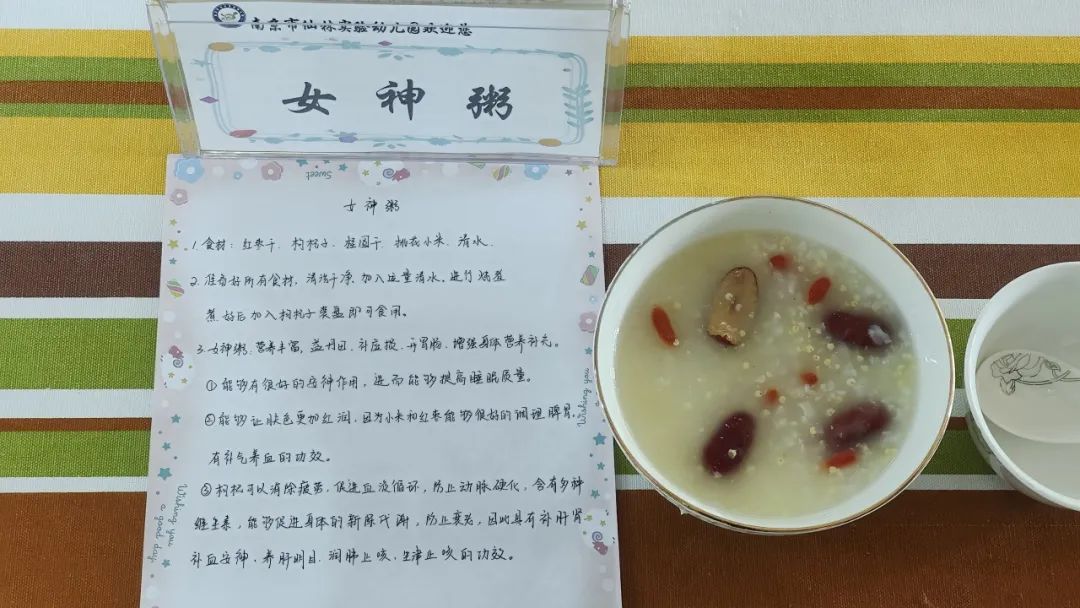 南京市仙林实验幼儿园欢迎您
女 神 粥
Sweet
女神粥
1. 食材：红枣干、枸杞子、桂圆干、桃花小米、清水.
2. 准备好所有食材，清洁干净.加入适量清水.进行熬煮
煮好后加入枸杞子装盘即可食用。
3. 女神粥.营养丰富,益丹田、补虚损、开胃肠、增强身体营养补充。
①能够有很好的安神作用，进而能够提高睡眠质量。
②能够让肤色更加红润，因为小米和红枣能够很好的调理脾胃，
有补气养血的功效。
③枸杞可以消除疲劳，促进血液循环，防止动脉硬化，含有多种
维生素，能够促进身体的新陈代谢，防止衰老，因此具有补肝肾
补血安神、养肝明目、润肺止咳、生津止咳的功效。
Wishing you
a good day
Wishing you